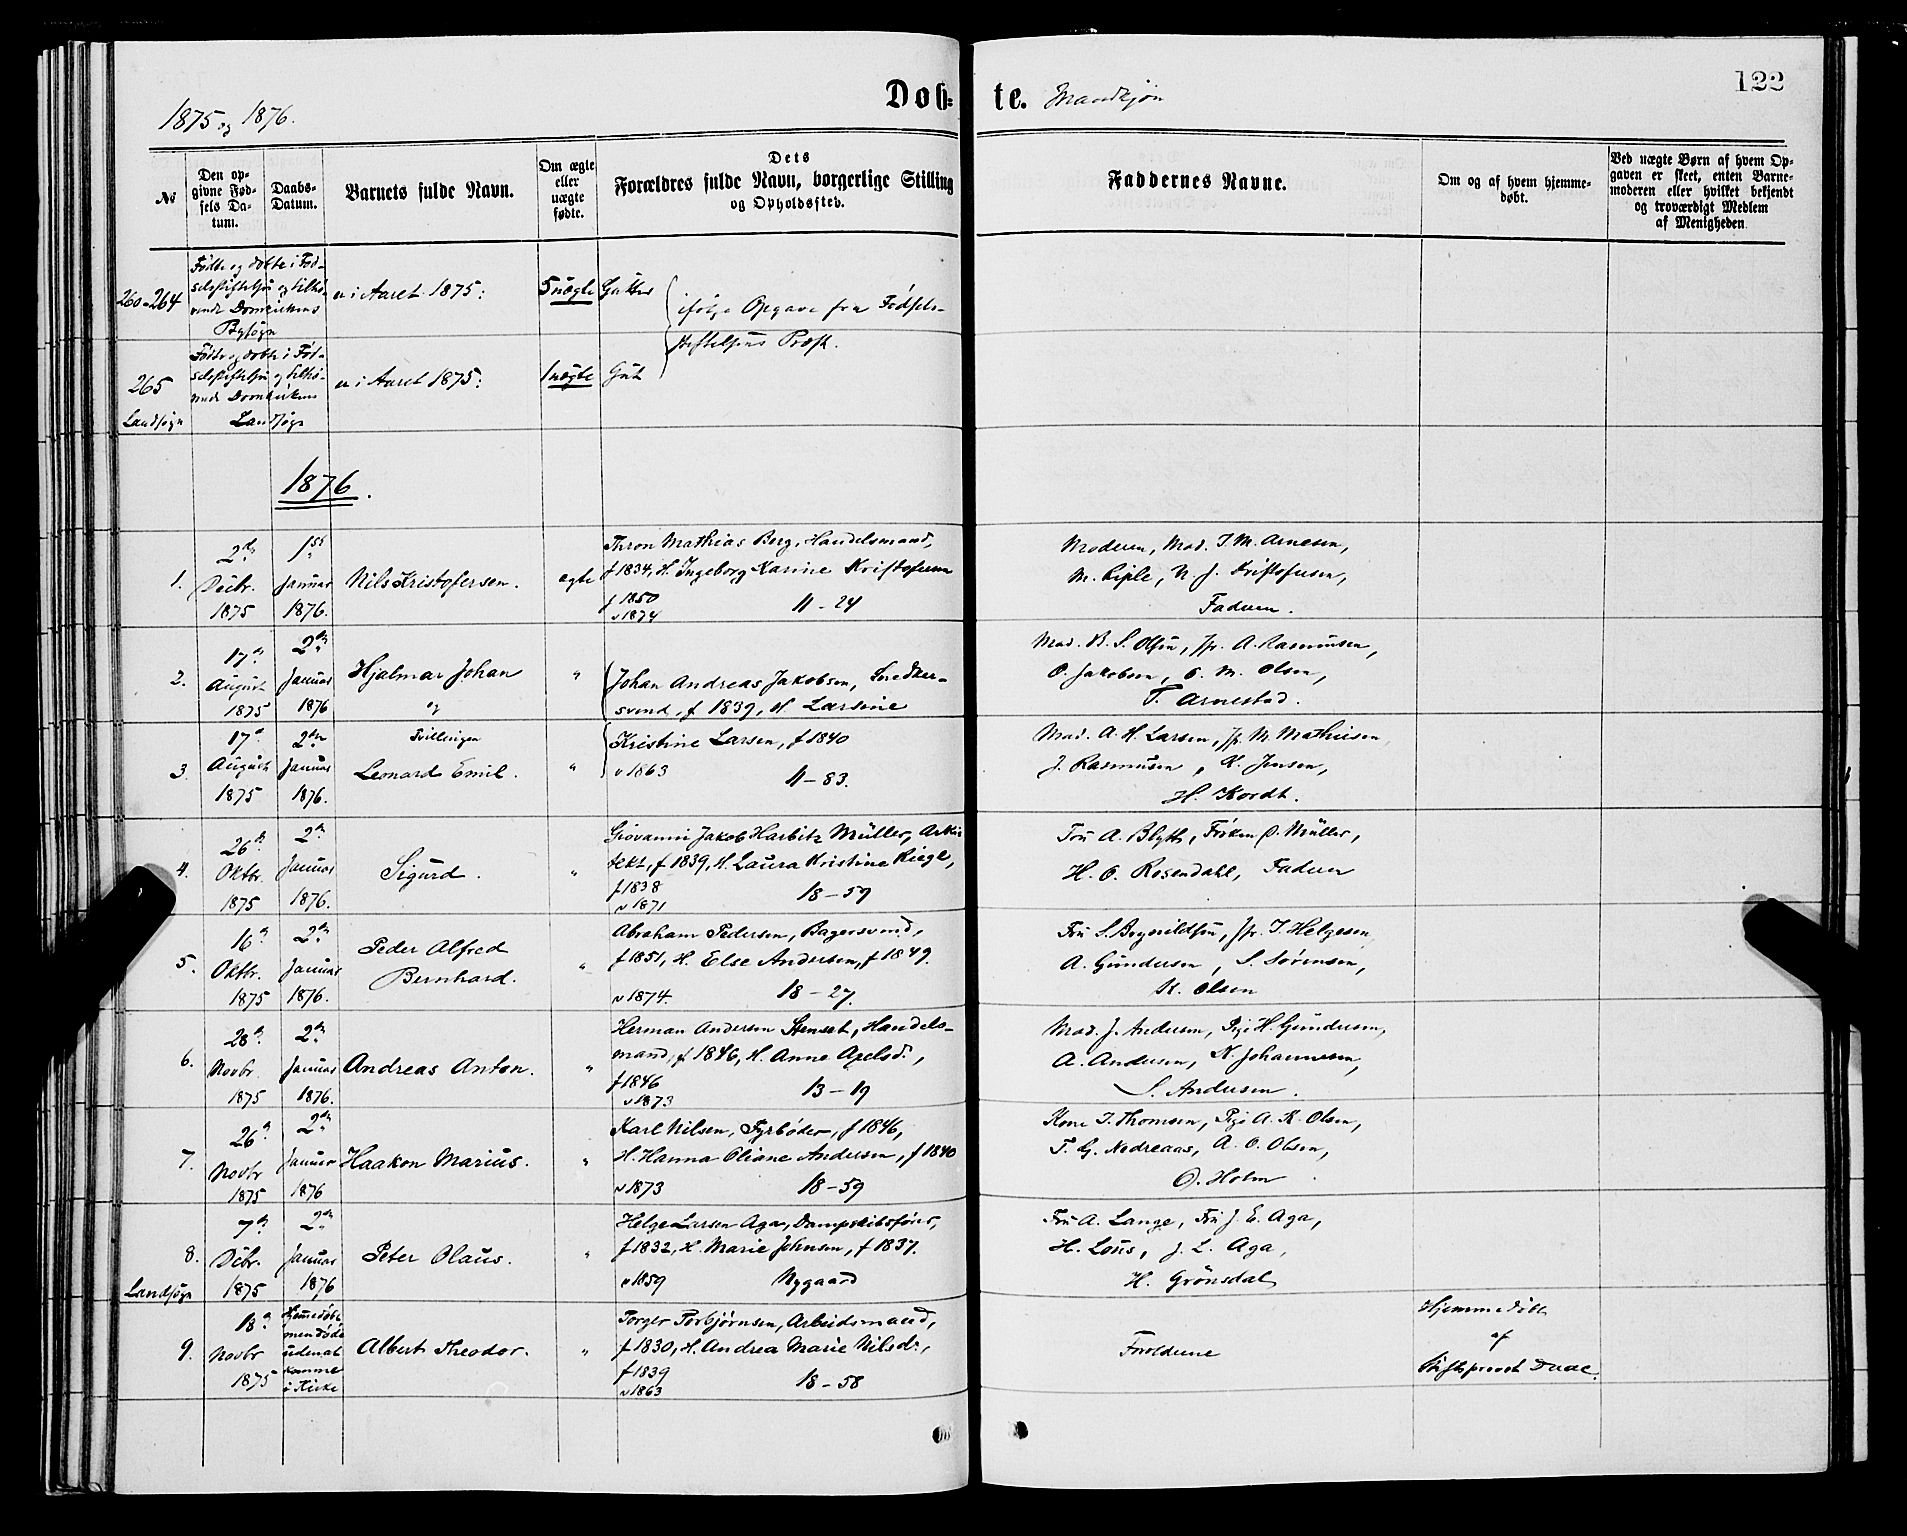 1875 og 1876.
Døb= te. Mandkjøn
122
No
Den op-
givne Fød-
sels Da-
tum.
Daabs-
Datum.
Barnets fulde Navn.
Om ægte
eller
uægte
fødte.
Dets
Forældres fulde Navn, borgerlige Stilling
og Opholdssted.
Faddernes Navne.
Om og af hvem hjemme-
døbt.
Ved uægte Børn af hvem Op-
gaven er skeet, enten Barne-
moderen eller hvilket bekjendt
og troværdigt Medlem
af Menigheden.
260-264
Fødte og døbte i Fød-
selsstiftelsen og tilhø-
rende Domkirkens
Bysogn
er i Aaret 1875:
5 uægte
Gutter
ifølge Opgave fra Fødsels-
stiftelsens Præst.
265
Landsogn
Fødte og døbte i Fød-
selsstiftelsen og tilhø-
rende Domkirkens
Landsogn
er i Aaret 1875:
1 uægte
Gut
1876.
1.
2den
Decbr.
1875
1ste
Januar
1876.
Nils Kristofersen.
ægte
Thron Mathias Berg, Handelsmand,
f 1834, H. Ingeborg Karine Kristofersen
f 1850
v 1874
11-24
Moderen, Mad. J. M. Arnesen,
M. Riple, N. J. Kristofersen,
Faderen.
2.
17de
August
1875
2den
Januar
1876
Hjalmar Johan
og
"
Johan Andreas Jakobsen, Snedker-
svend, f 1839, H. Larsine
Mad. B. S. Olsen, Jfr. A. Rasmussen,
O. Jakobsen, O. M. Olsen,
T. Arnestad.
3.
17de
August
1875
2den
Januar
1876.
Tvillingen
Leonard Emil.
"
Kristine Larsen, f 1840
v 1863
11-83.
Mad. A. H. Larsen, Jfr. M. Mathiesen,
J. Rasmussen, K. Jensen,
H. Kordt.
4.
26de
Oktbr.
1875
2den
Januar
1876.
Sigurd.
"
Giovanni Jakob Harbitz Müller, Arki
tekt, f 1839, H. Laura Kristine Riege,
f 1838
v 1871
18-59
Fru A. Blytt, Frøken O. Müller,
H. O. Rosendahl, Faderen
5.
16de
Oktbr.
1875
2den
Januar
1876.
Peder Alfred
Bernhard.
"
Abraham Pedersen, Bagersvend,
f 1851, H. Else Andersen, f 1849.
v 1874.
18-27.
Fru S. Bognildsen, Jfr. J. Helgesen,
A. Gundersen, S. Sørensen,
K. Olsen
6.
28de
Novbr.
1875
2den
Januar
1876.
Andreas Anton.
"
Herman Andersen Stenset, Handels-
mand, f 1846, H. Anne Axelsd.,
f 1846
v 1873
13-19
Mad. J. Andersen, Pige H. Gundersen,
A. Andersen, N. Johannesen,
S. Andersen.
7.
26de
Novbr
1875
2den
Januar
1876
Haakon Marius.
"
Karl Nilsen, Fyrbøder, f 1846,
H. Hanna Oliane Andersen, f 1840
v 1873
18-59
Kone J. Thomsen, Pige A. K. Olsen,
T. G. Nedreaas, A. O. Olsen,
O. Holm
8.
Landsogn
7de
Dcbr.
1875
2den
Januar
1876
Peter Olaus.
"
Helge Larsen Aga, Dampskibsfører,
f 1832, H. Marie Johnsen, f 1837.
v 1859
Nygaard
Fru A. Lange, Fru J. E. Aga,
H. Lous, J. L. Aga,
H. Grønsdal
9.
18de
Novbr
1875
Hjemmedøbt
men døde
uden at
komme
i Kirke
Albert Theodor.
"
Torger Torbjørnsen, Arbeidsmand,
f 1830, H. Andrea Marie Nilsd.,
f 1839
v 1863
18-58
Forældrene
Hjemmedøbt
af
Stiftsprovst Daae.